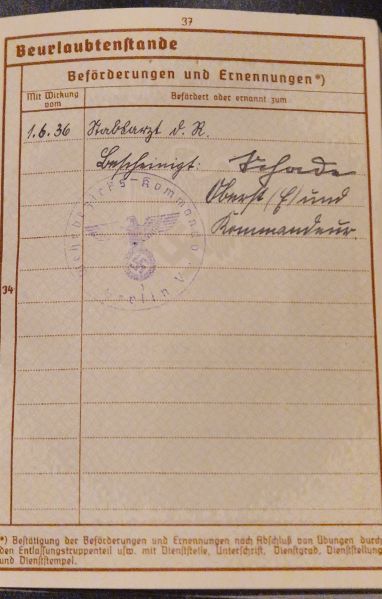 37
Beurlaubtenstande
Beförderungen und Ernennungen*)
Mit Wirkung vom
Befördert oder ernannt zum
1.6.36 Stabsarzt d. R.
Bescheinigt: Schade
Oberst (E) und
Kommandeur.
Wehrbezirks-Kommando
Berlin V
34
*) Bestätigung der Beförderungen und Ernennungen nach Abschluß von Übungen durch
den Entlassungstruppenteil usw. mit Dienststelle, Unterschrift, Dienstgrad, Dienststellung
und Dienststempel.